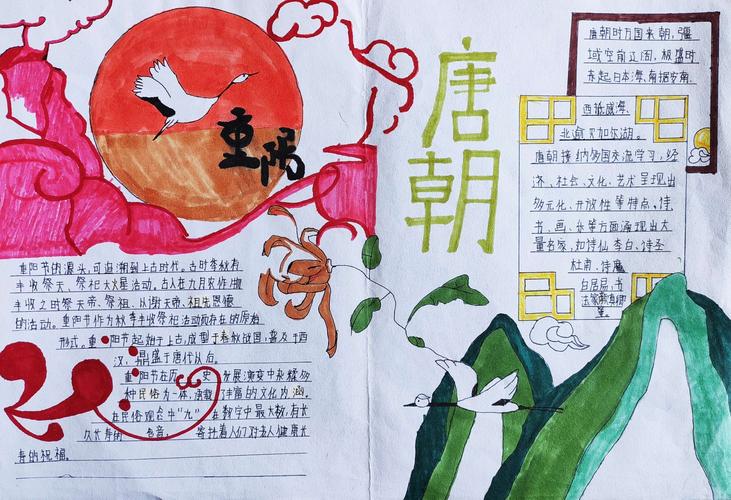 重阳
重阳节的源头,可追溯到上古时代。古时季秋有
丰收祭天、祭祀大火星活动。古人在九月农作物
丰收之时祭天帝、祭祖,以谢天帝、祖先恩德
的活动。重阳节作为秋季丰收祭祀活动而存在的原始
形式。重阳节起始于上古,成型于春秋战国,普及于西
汉,鼎盛于唐代以后。
重阳节在历史发展演变中杂糅多
种民俗为一体,承载了丰富的文化内涵。
在民俗观念中“九”在数字中最大数,有长
久长寿的 含意, 寄托着人们对老人健康长
寿的祝福。
唐朝
唐朝时万国来朝,疆
域空前辽阔,极盛时
东起日本海、南据安南、
西抵咸海、
北逾贝加尔湖。
唐朝接纳多国交流学习,经
济、社会、文化、艺术呈现出
多元化、开放性等特点,诗、
书、画、乐等方面涌现出大
量名家,如诗仙李白、诗圣
杜甫、诗魔
白居易,书
法家颜真卿